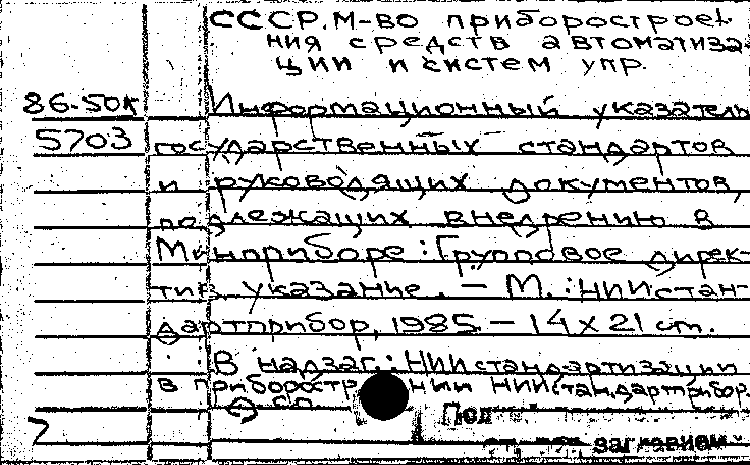 СССР. М-во приборострое
ния средств автоматиза-
ции и систем упр.
86-50к Информационный указатель
5703 государственных стандартов
и руководящих документов,
подлежащих внедрению в
Минприборе : Групповое дирек-
тив. указание. — М. : НИИстан-
дартприбор, 1985. — 14 x 21 см.
В надзаг. : НИИ стандартизации
в приборостр нии НИИстандартприбор.
Под
заглавием